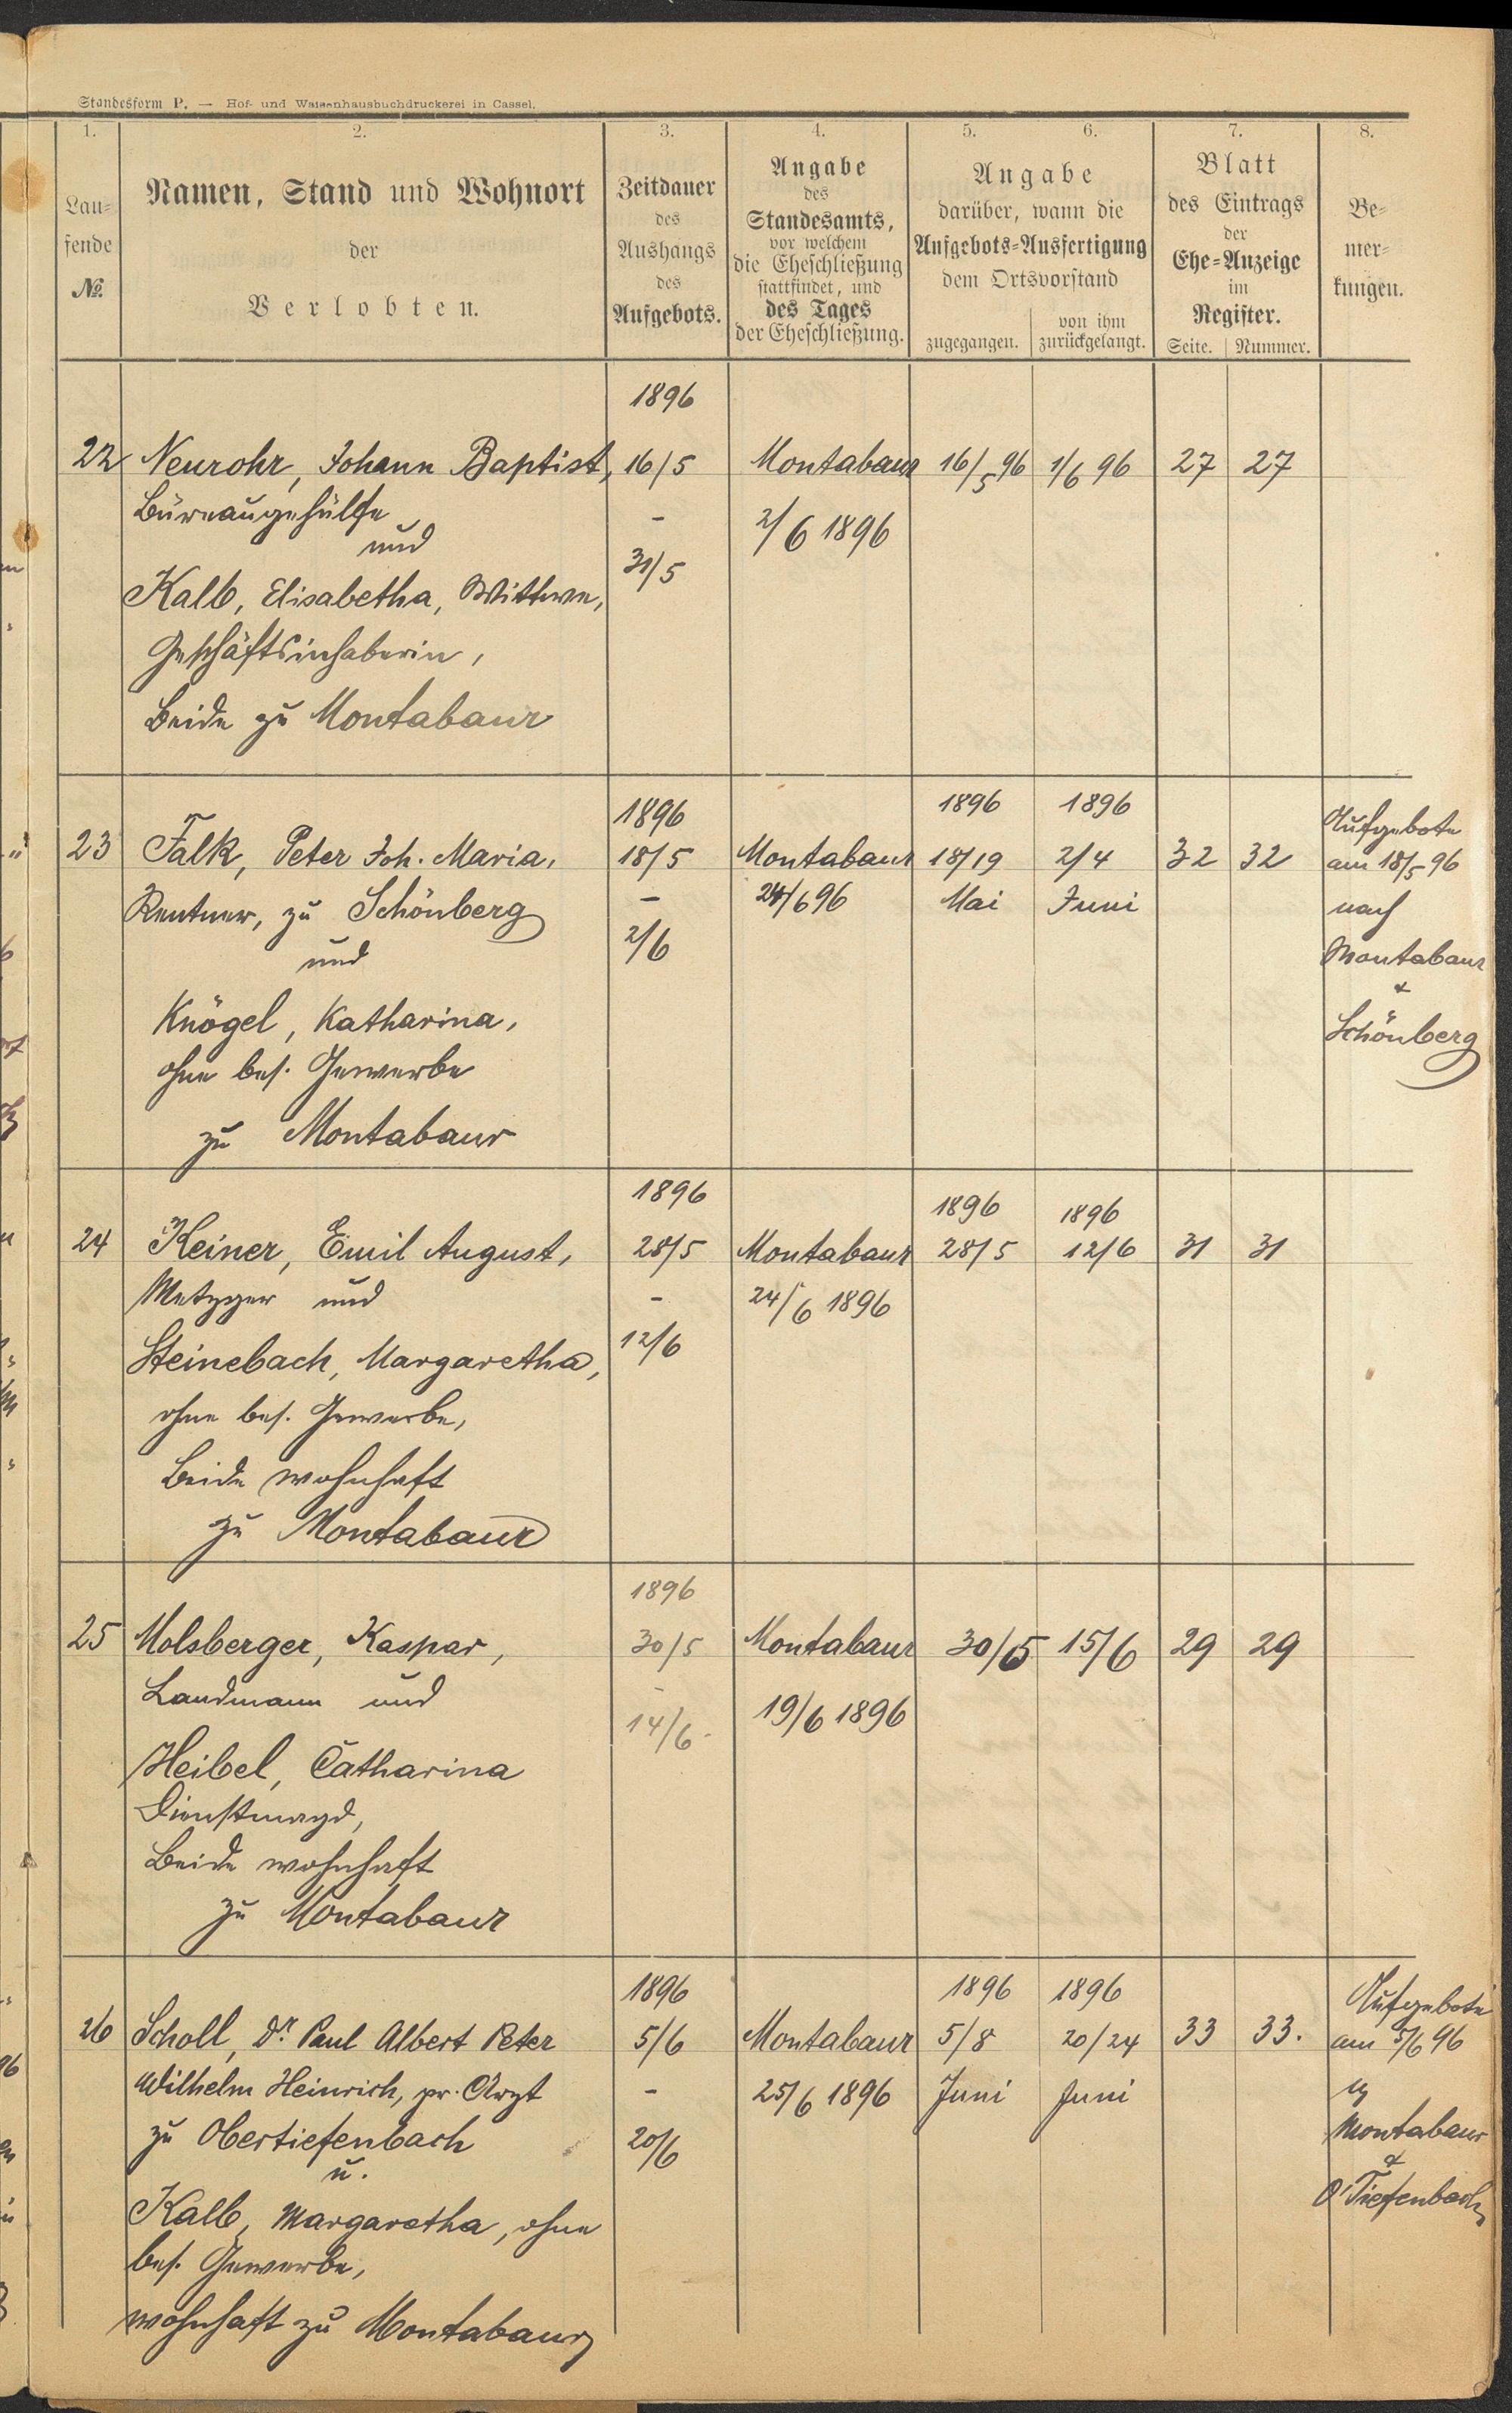 Standesform P. — Hof- und Waisenhausbuchdruckerei in Cassel.
1. 2. 3. 4. 5. 6. 7. 8.
Lau-
fende
№.
Namen, Stand und Wohnort
der
Verlobten.
Zeitdauer
des
Aushangs
des
Aufgebots.
Angabe
des
Standesamts,
vor welchem
die Eheschließung
stattfindet, und
des Tages
der Eheschließung.
Angabe
darüber, wann die
Aufgebots-Ausfertigung
dem Ortsvorstand
zugegangen.
von ihm
zurückgelangt.
Blatt
des Eintrags
der
Ehe-Anzeige
im
Register.
Seite. Nummer.
Be-
mer-
kungen.
1896
22 Neurohr, Johann Baptist, 16/5 Montabaur 16/5 96 1/6 96 27 27
Büreaugehülfe - 2/6 1896
und
31/5
Kalb, Elisabetha, Wittwe,
Geschäftsinhaberin,
Beide zu Montabaur
1896 1896 1896 Aufgebote
23 Falk, Peter Joh. Maria, 18/5 Montabaur 18/19 2/4 32 32 am 18/5 96
Rentner, zu Schönberg - 24/6 96 Mai Juni nach
und 2/6 Montabaur
&
Knögel, Katharina, Schönberg
ohne bes. Gewerbe
zu Montabaur
1896 1896 1896
24 Keiner, Emil August, 28/5 Montabaur 28/5 12/6 31 31
Metzger und - 24/6 1896
Steinebach, Margaretha, 12/6
ohne bes. Gewerbe,
Beide wohnhaft
zu Montabaur
1896
25 Molsberger, Kaspar, 30/5 Montabaur 30/5 15/6 29 29
Landmann und - 19/6 1896
14/6
Heibel, Catharina
Dienstmagd,
Beide wohnhaft
zu Montabaur
1896 1896 1896 Aufgebote
26 Scholl, Dr. Paul Albert Peter 5/6 Montabaur 5/8 20/24 33 33. am 5/6 96
Wilhelm Heinrich, pr. Arzt - 25/6 1896 Juni Juni
zu Obertiefenbach 20/6 Montabaur
u. &
Kalb, Margaretha, ohne O'Tiefenbach
bes. Gewerbe,
wohnhaft zu Montabaur